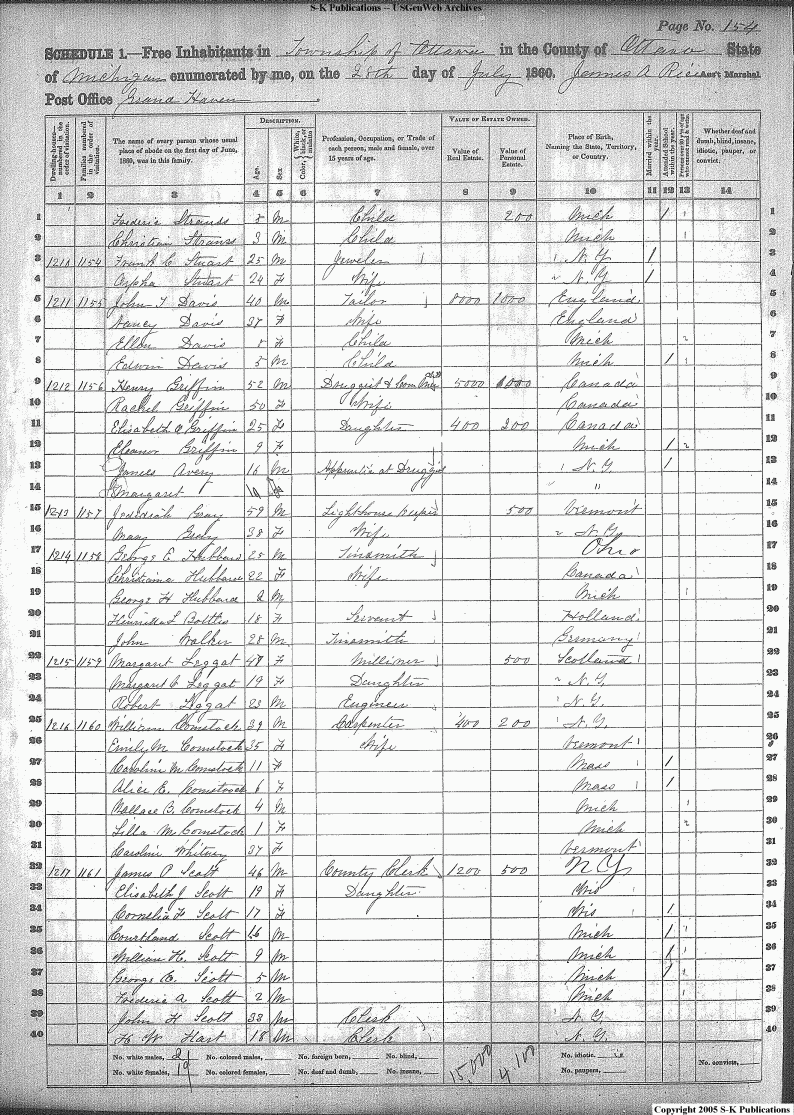 S-K Publications -- USGenWeb Archives
Page No. 154
SCHEDULE 1.—Free Inhabitants in Township of Ottawa in the County of Ottawa State
of Michigan enumerated by me, on the 28th day of July 1860. James A Rice Ass't Marshal
Post Office Grand Haven.
Dwelling-houses—numbered in the order of visitation.
Families numbered in the order of visitation.
The name of every person whose usual place of abode on the first day of June, 1860, was in this family.
DESCRIPTION.
Age.
Sex
Color, White, black, or mulatto
Profession, Occupation, or Trade of each person, male and female, over 15 years of age.
VALUE OF ESTATE OWNED.
Value of Real Estate.
Value of Personal Estate.
Place of Birth, Naming the State, Territory, or Country.
Married within the year.
Attended School within the year.
Whether deaf and dumb, blind, insane, idiotic, pauper, or convict.
1 2 3 4 5 6 7 8 9 10 11 12 13 14
1 Frederic Strauss 8 M Child 200 Mich / 1
2 Christian Strauss 3 M Child Mich 2
3 1210 1154 Frank C Stuart 25 M Jeweler N. Y 1 3
4 Orpha Stuart 24 F Wife N. Y. 1 4
5 1211 1155 John T Davis 40 M Tailor 8000 1000 England 5
6 Nancy Davis 37 F Wife England 6
7 Ellen Davis 8 F Child Mich 7
8 Edwin Davis 5 M Child Mich 1 8
9 1212 1156 Henry Griffin 52 M Druggist & 5000 6000 Canada 9
10 Rachel Griffin 50 F Wife Canada 10
11 Elisabeth A Griffin 25 F Daughter 400 200 Canada 11
12 Eleanor Griffin 9 F Mich 1 12
13 James Avery 16 M Apprentice at Druggis N. Y 1 13
14 Margaret " 14
15 1213 1157 Jedediah Gray 59 M Lighthouse Keeper 500 Vermont 15
16 Mary Gray 38 F Wife N. Y. 16
17 1214 1158 George E Hubbard 25 M Tinsmith Ohio 17
18 Christiana Hubbard 22 F Wife Canada 18
19 George H Hubbard 2 M Mich 19
20 Henrietta L 18 F Servant Holland 20
21 John Walker 28 M Tinsmith Germany 21
22 1215 1159 Margaret Leggat 47 F Milliner 500 Scotland 22
23 Margaret C Leggat 19 F Daughter N. Y. 23
24 Robert Leggat 23 M Engineer N. Y. 24
25 1216 1160 William Comstock 39 M Carpenter 400 200 N. Y. 25
26 Emily M Comstock 35 F Wife Vermont 26
27 Caroline M Comstock 11 F Mass 1 27
28 Alice E. Comstock 6 F Mass 1 28
29 Wallace B. Comstock 4 M Mich 29
30 Lilla M Comstock 1 F Mich 30
31 Caroline Whitney 37 F Vermont 31
32 1217 1161 James P Scott 46 M County Clerk 1200 500 NY 32
33 Elisabeth J Scott 19 F Daughter Wis 33
34 Cornelia F Scott 17 F Wis 1 34
35 Courtland Scott 16 M Mich 1 35
36 William H. Scott 9 M Mich 1 36
37 George C. Scott 5 M Mich 1 37
38 Frederic A Scott 2 M Mich 38
39 John H Scott 33 M Clerk N. Y 39
40 H W Hart 18 M Clerk N. Y. 40
No. white males, 21 No. colored males, No. foreign born, No. blind, 15,000 4,100 No. idiotic,
No. white females, 19 No. colored females, No. deaf and dumb, No. insane, No. paupers, No. convicts,
Copyright 2005 S-K Publications